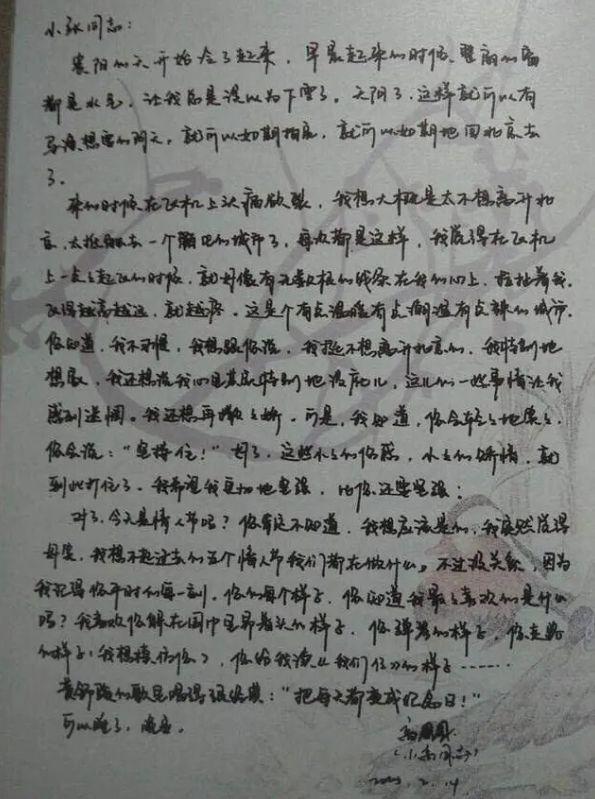 小张同志：
襄阳的天开始冷了起来，早晨起来的时候，里的窗
都是水气，让我总是误以为下雪了。天阴了，这样就可以有
想要的阴天，就可以如期拍戏，就可以如期地回北京去
了。
来的时候在飞机上头痛欲裂，我想大概是太不想离开北
京，太抵触去一个陌生的城市了，每次都是这样，我觉得在飞机
上一点点起飞的时候，就好像有无数根的线条在我的心上，拉扯着我，
飞得越高越远，就越疼。这是个有点温暖有点潮湿有点辣的城市，
你知道，我不习惯，我想跟你说，我挺不想离开北京的，我特别地
想家，我还想说我心里其实特别地没底儿，这儿的一些事情让我
感到迷惘。我还想再撒撒娇。可是，我知道，你会轻轻地笑笑，
你会说：“坚持住！”好了，这些小小的伤感，小小的矫情，就
到此打住了。我希望我更加地坚强，比你还要坚强；
对了，今天是情人节吗？你肯定不知道，我想应该是的，我突然觉得
好笑，我想不起过去的五个情人节我们都在做什么。不过没关系，因为
我记得你平时的每一刻。你的每个样子，你知道我最喜欢的是什么
吗？我喜欢你躲在围巾里晃着头的样子，你弹琴的样子，你走路
的样子（我想模仿你），你给我读《我们仨》的样子……
黄舒骏的歌里唱得很好：“把每天都变成纪念日！”
可以睡了，晚安。
（小高同志）
2.14